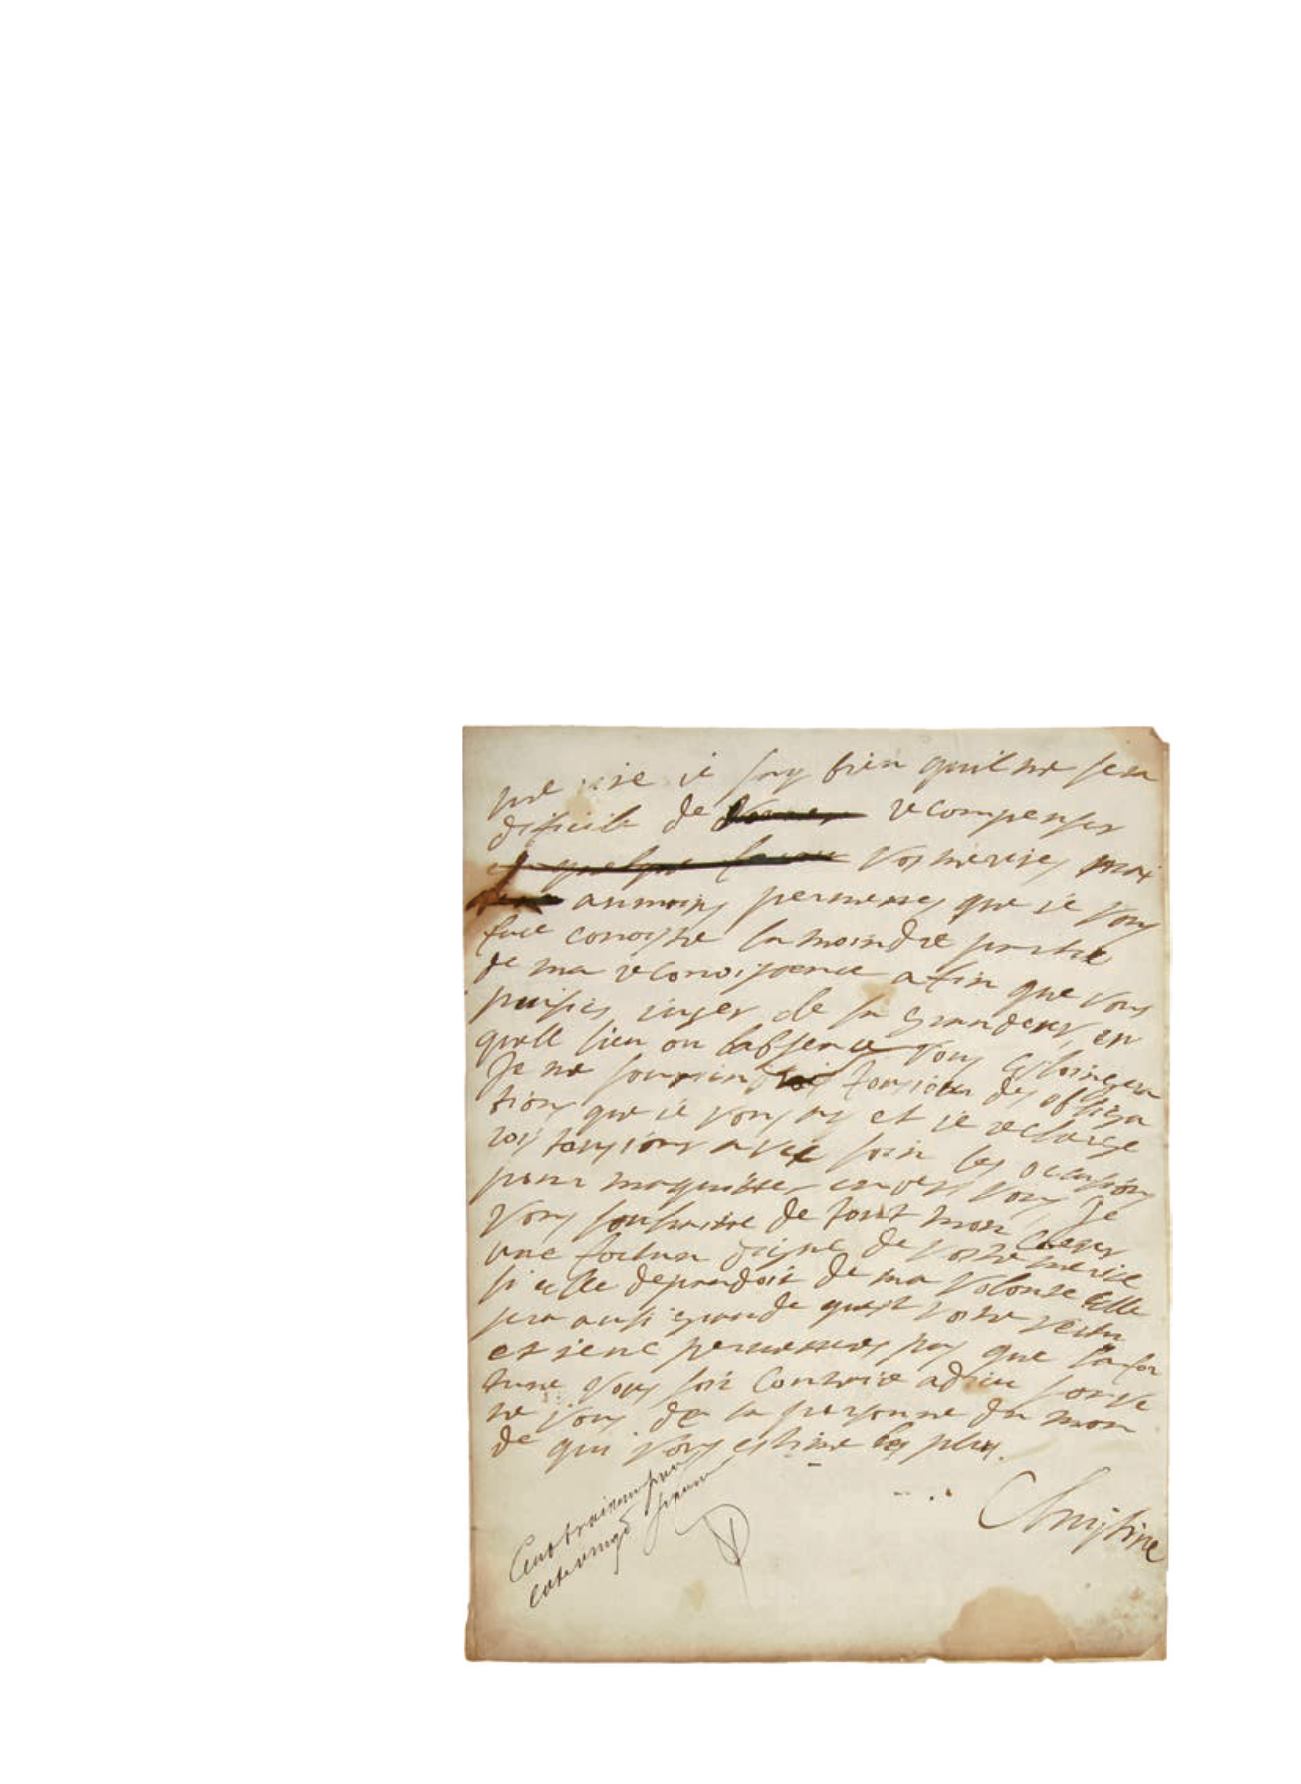 je say bien quil me sera
dificile de recompenser
vos merites mai
aumoins permettes que je vous
face conoistre la moindre partie
de ma reconoissence afin que vous
puissies juger de sa grandeur en
quell lieu ou labsence vous
Je ne tousiour des obliga
tions que ie vous ay et je
tousiours avec soin les occasions
pour maquitter envers vous Je
vous souhaitte de tout mon coeur
une fortune digne de vostre merite
si elle dependoit de ma volonte elle
sera ausi grande quest vostre vertu
et je ne permettres pas que la for
tune vous soit contraire adieu
ne vous de la personne du mon
de qui vous estime le plus.
Christine